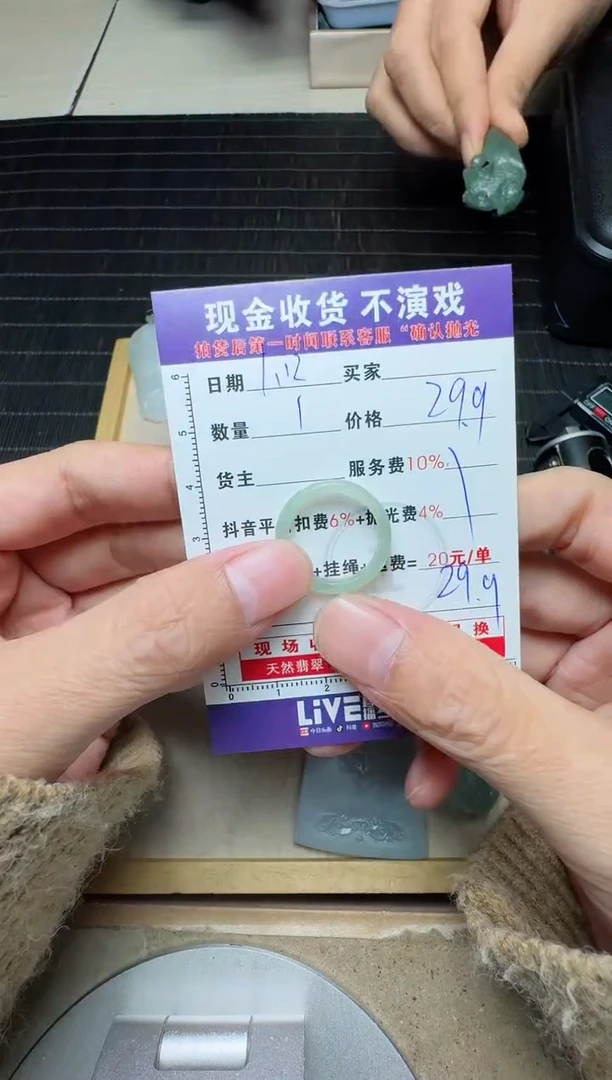 现金收货 不演戏
拍货后第一时间联系客服 “确认抛光
日期 1.12 买家
数量 1 价格 29.9
货主 服务费10%
抖音平 扣费6%+ 光费4%
+挂绳+ 费= 20元/单
29.9
现场 换
天然翡翠
LiVE
今日头条 抖音